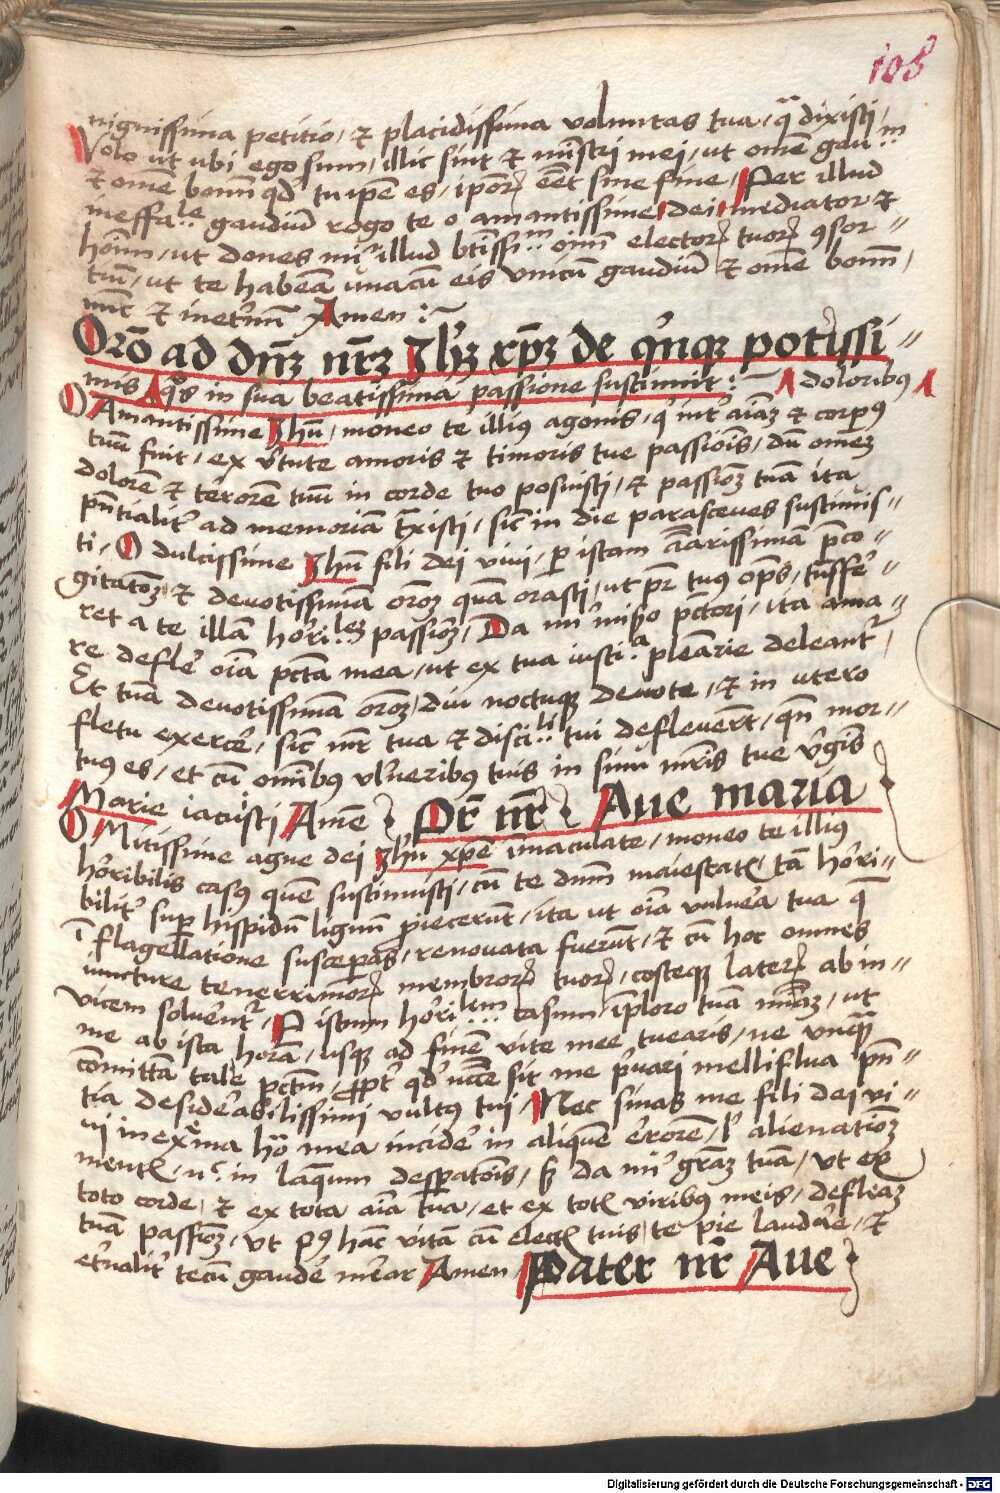 108
nignissima petitio, et placidissima voluntas tua, qua dixisti,
Volo ut ubi ego sum, illic sint et mistri mei, ut omē gau
et omē bonū qd tu ipe es, sine fine, Per illud
ineffale gaudiū rogo te o amantissime dei mediator et
hoim, ut dones mi illud btissim oim elector tuor 9sor
tiū, ut te habeā unacū eis vnicū gaudiū et omē bonū,
nūc et ineternū Amen :~
Orō ad dnm nrm Jhm xpm de qinqz potissi
mis qs in sua beatissima passione sustinuit :~ doloribus
O Amantissime Jhū, moneo te illius agonis, q int aiam et corpus
tuū fuit, ex vtute amoris et timoris tue passiois, dū omem
dolorē et terorē tuū in corde tuo posuisti, et passionem tuā ita
pntialit ad memoriā traxisti, sic in die parasceues sustinuis
ti, O dulcissime Jhū fili dei vivi, p istam amarissimā pco
gitatoem, et devotissimā oroem quā orasti, ut pr tuus ops, tnsfer
ret a te illā horilem passioem, Da mi miso pctori, ita ama
re deflē oia pcta mea, ut ex tua iusticia plēarie deleant
Et tuā devotissimā oroem, diu noctuqz devote, et in utero
fletu exercē, sic mr tua et discipli tui defleverūt, qn mor
tuus es, et cū omibus vlneribus tuis in sinu mris tue vginis
Marie iacuisti Amē Pr nr Ave maria
O Mitissime agne dei Jhū xpē immaculate, moneo te illius
horibilis casus quē sustinuisti, cū te dnm maiestatis tā hori
bilit sup hispidū lignū piecerūt, ita ut oia vulnera tua q
ī flagellatione susceperas, renovata fuerūt, et cū hoc omnes
iuncture tenerrimor membror tuor, costeqz later ab in
vicem solvent, P istum horilem casum, iploro tuā miam, ut
me ab ista horā, usqz ad finē vite mee tuearis, ne vnqm
comittā talē pctm, ppt qd necē sit me pvari melliflua pn
tia desiderabilissimi vultus tui, Nec sinas me fili dei vi
vi in extma hora mea incidē in aliquē errorē, l alienatioem
mentis, nec in laqum despatois, sz da mi gram tuā, ut ex
toto corde, et ex tota aia tua, et ex totis viribus meis, defleam
tuā passioem, vt p9 hac vitā cū electis tuis, te pie laudare, et
eternalit tecū gaudē merear Amen Pater nr Ave
Digitalisierung gefördert durch die Deutsche Forschungsgemeinschaft - DFG